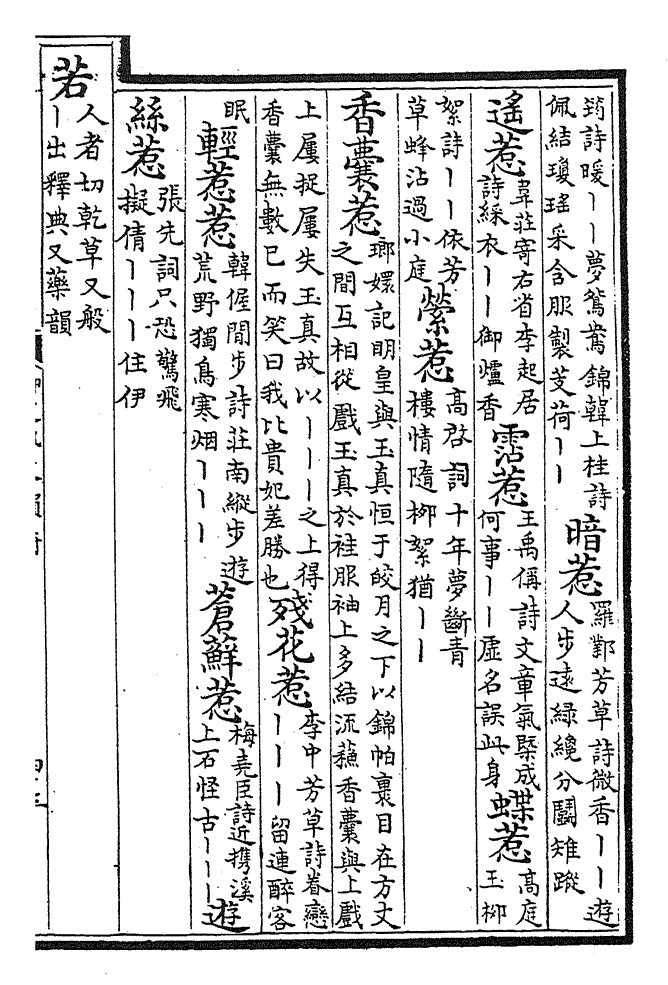 筠詩暖丨丨夢鴛鴦錦韓上桂詩
佩結瓊瑤采含服製芰荷丨丨
暗惹
羅鄴芳草詩微香丨丨遊
人步遠緑纔分鬭雉蹤
遙惹
韋莊寄右省李起居
詩綵衣丨丨御爐香
霑惹
王禹偁詩文章氣槩成
何事丨丨虚名誤此身
蝶惹
高庭
玉柳
絮詩丨丨依芳
草蜂沾過小庭
縈惹
高啓詞十年夢斷青
樓情隨柳絮猶丨丨
香囊惹
瑯嬛記明皇與玉真恒于皎月之下以錦帕裹目在方丈
之間互相從戲玉真於袿服袖上多結流蘓香囊與上戲
上屢捉屢失玉真故以丨丨丨之上得
香囊無數已而笑曰我比貴妃差勝也
殘花惹
李中芳草詩眷戀
丨丨丨留連醉客
眠
輕惹惹
韓偓閒步詩莊南縱步遊
荒野獨鳥寒烟丨丨丨
蒼蘚惹
梅堯臣詩近携溪
上石怪古丨丨丨
遊
絲惹
張先詞只恐驚飛
擬倩丨丨丨住伊
若
人者切乾草又般
丨出釋典又藥韻